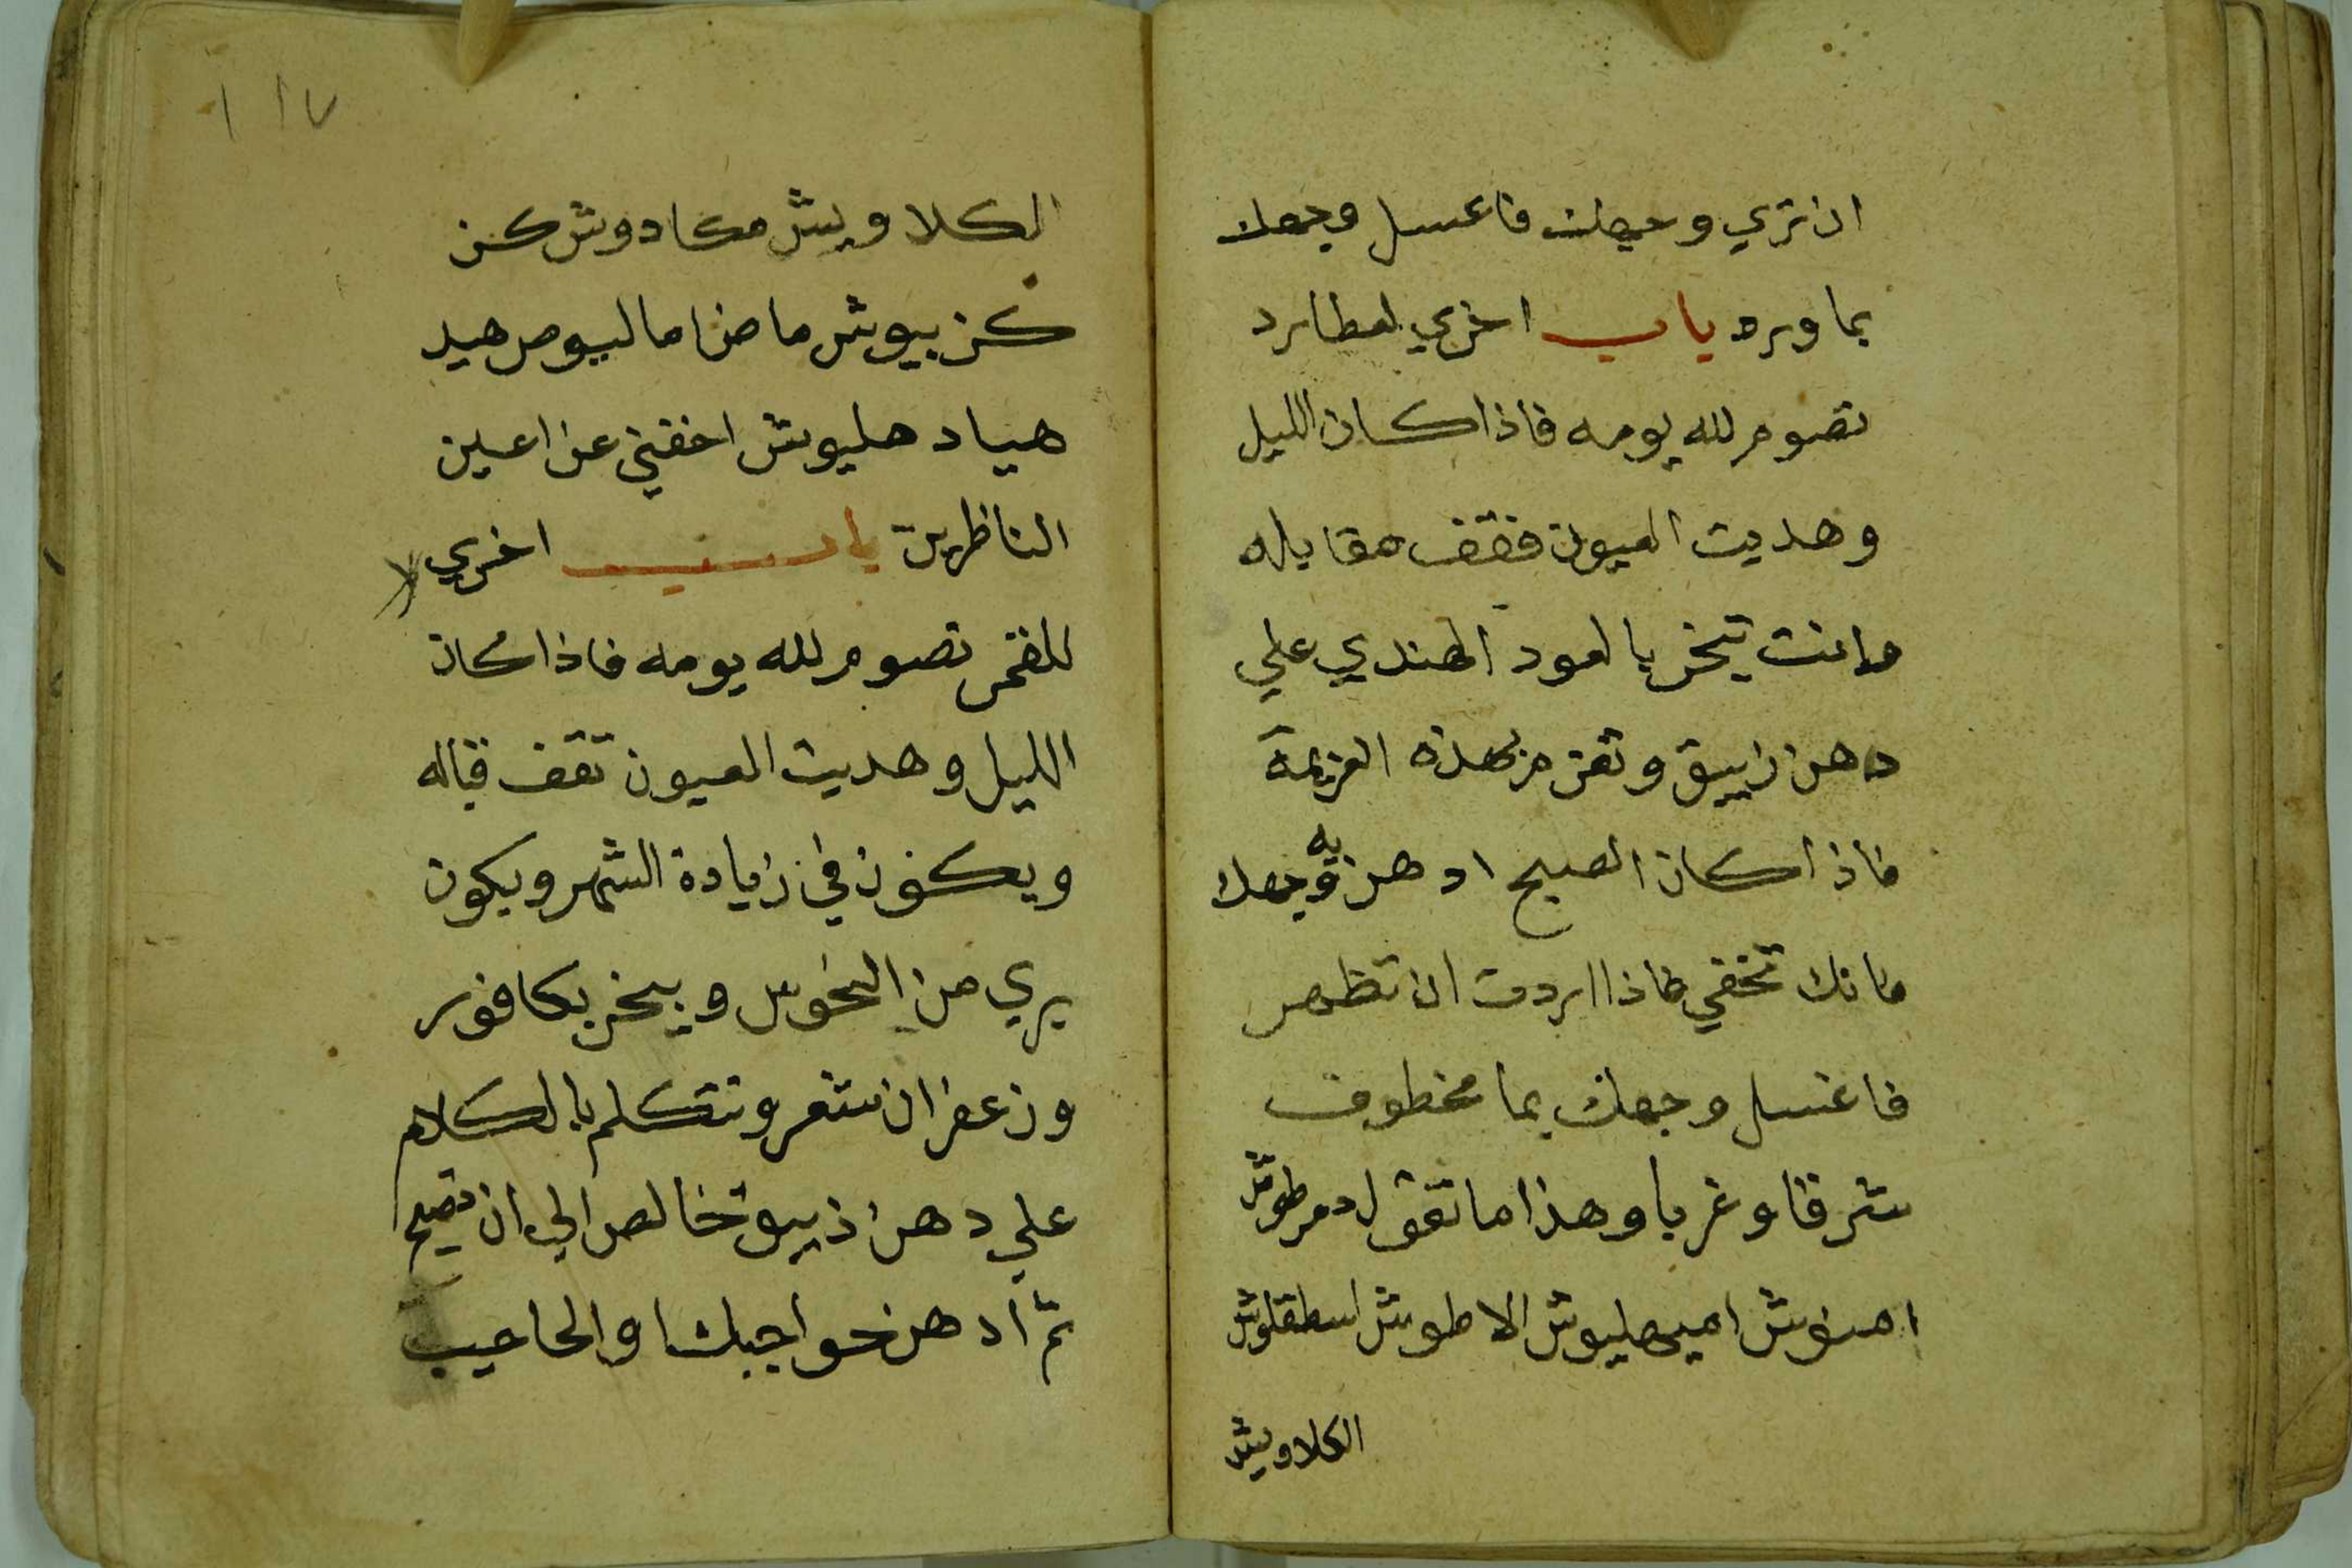 ان تري وجهك فاغسل وجهك
بما ورد باب اخري لعطارد
تصوم لله يومه فاذا كان الليل
وهديت العيون فقف مقابله
وانت تبخر بالعود الهندي علي
دهن زيبق وتعزم بهذه العزيمة
فاذا كان الصبح ادهن به وجهك
فانك تخفي فاذا اردت ان تظهر
فاغسل وجهك بما مخطوف
شرقا وغربا وهذا ما تقول دمرطوش
امنوش اميهليوش الاطوش اسطقلوش
الكلاويش
١١٧
الكلاويش مكادوش كن
كن بيوش ماضا ماليوص هيد
هياد هليوش اخفني عن اعين
الناظرين باب اخري
للقمر تصوم لله يومه فاذا كان
الليل وهديت العيون تقف قباله
ويكون في زيادة الشهر ويكون
بري من النحوس ويبخر بكافور
وزعفران شعر وتتكلم بالكلام
علي دهن زيبق خالص الي ان تصبح
ثم ادهن حواجبك والحاجب